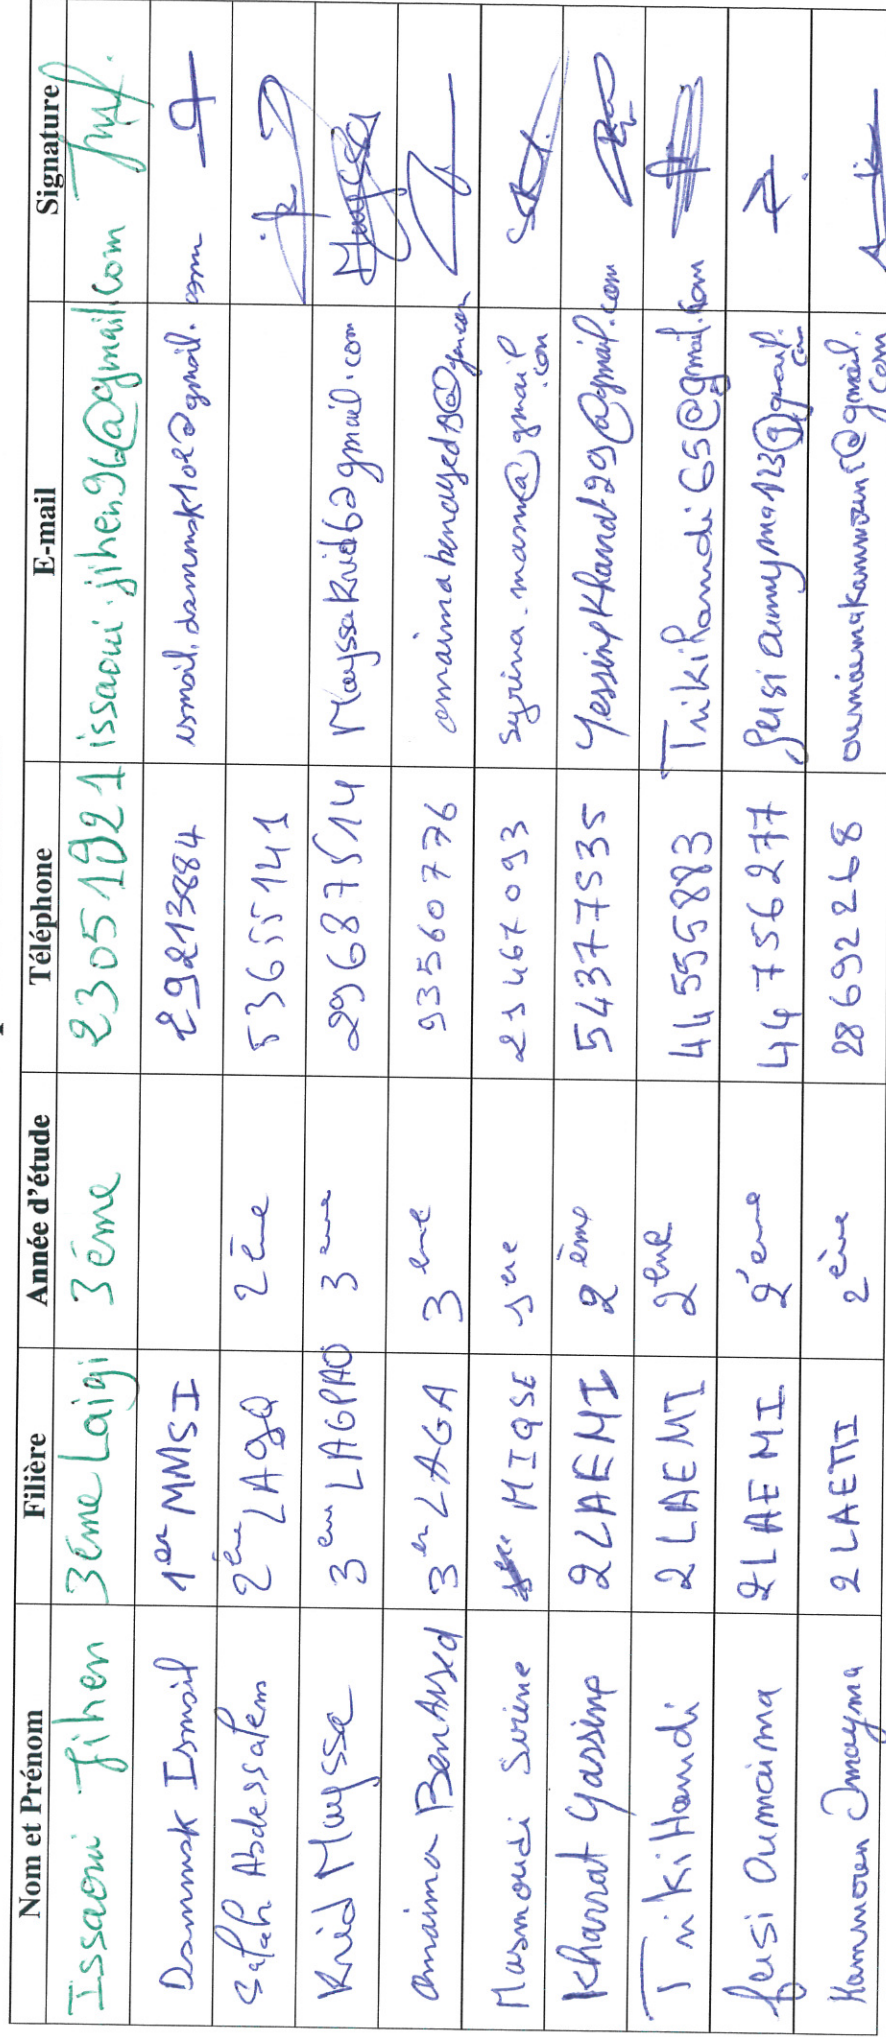 Nom et Prénom Filière Année d'étude Téléphone E-mail Signature
Issaoui Jihen 3éme Laigi 3éme 23051921 issaoui.jihen96@gmail.com
Dammak Ismail 1er MMSI 29213884 ismail.dammak102@gmail.com
Salah Abdessalem 2ème LAGA 2ème 53655141
Krid Mayssa 3eme LAGPAO 3eme 29687514 Mayssakrid6@gmail.com Mayssa
Omaima Ben Ayed 3en LAGA 3eme 93560776
Masmoudi Sirine MIQSE 1ere 21467093 syrina.masm@gmail.com
Kharrat Yassine 2LAEMI 2ème 54377535 Yessinekharrat29@gmail.com
Triki Hamdi 2LAEMI 2eme 44595883 Trikihamdi65@gmail.com
Oumaima 2LAEMI 2éme 44756277
Kammoun Omayma 2LAEMI 2ème 28692268 oumaimakammoun1@gmail.com